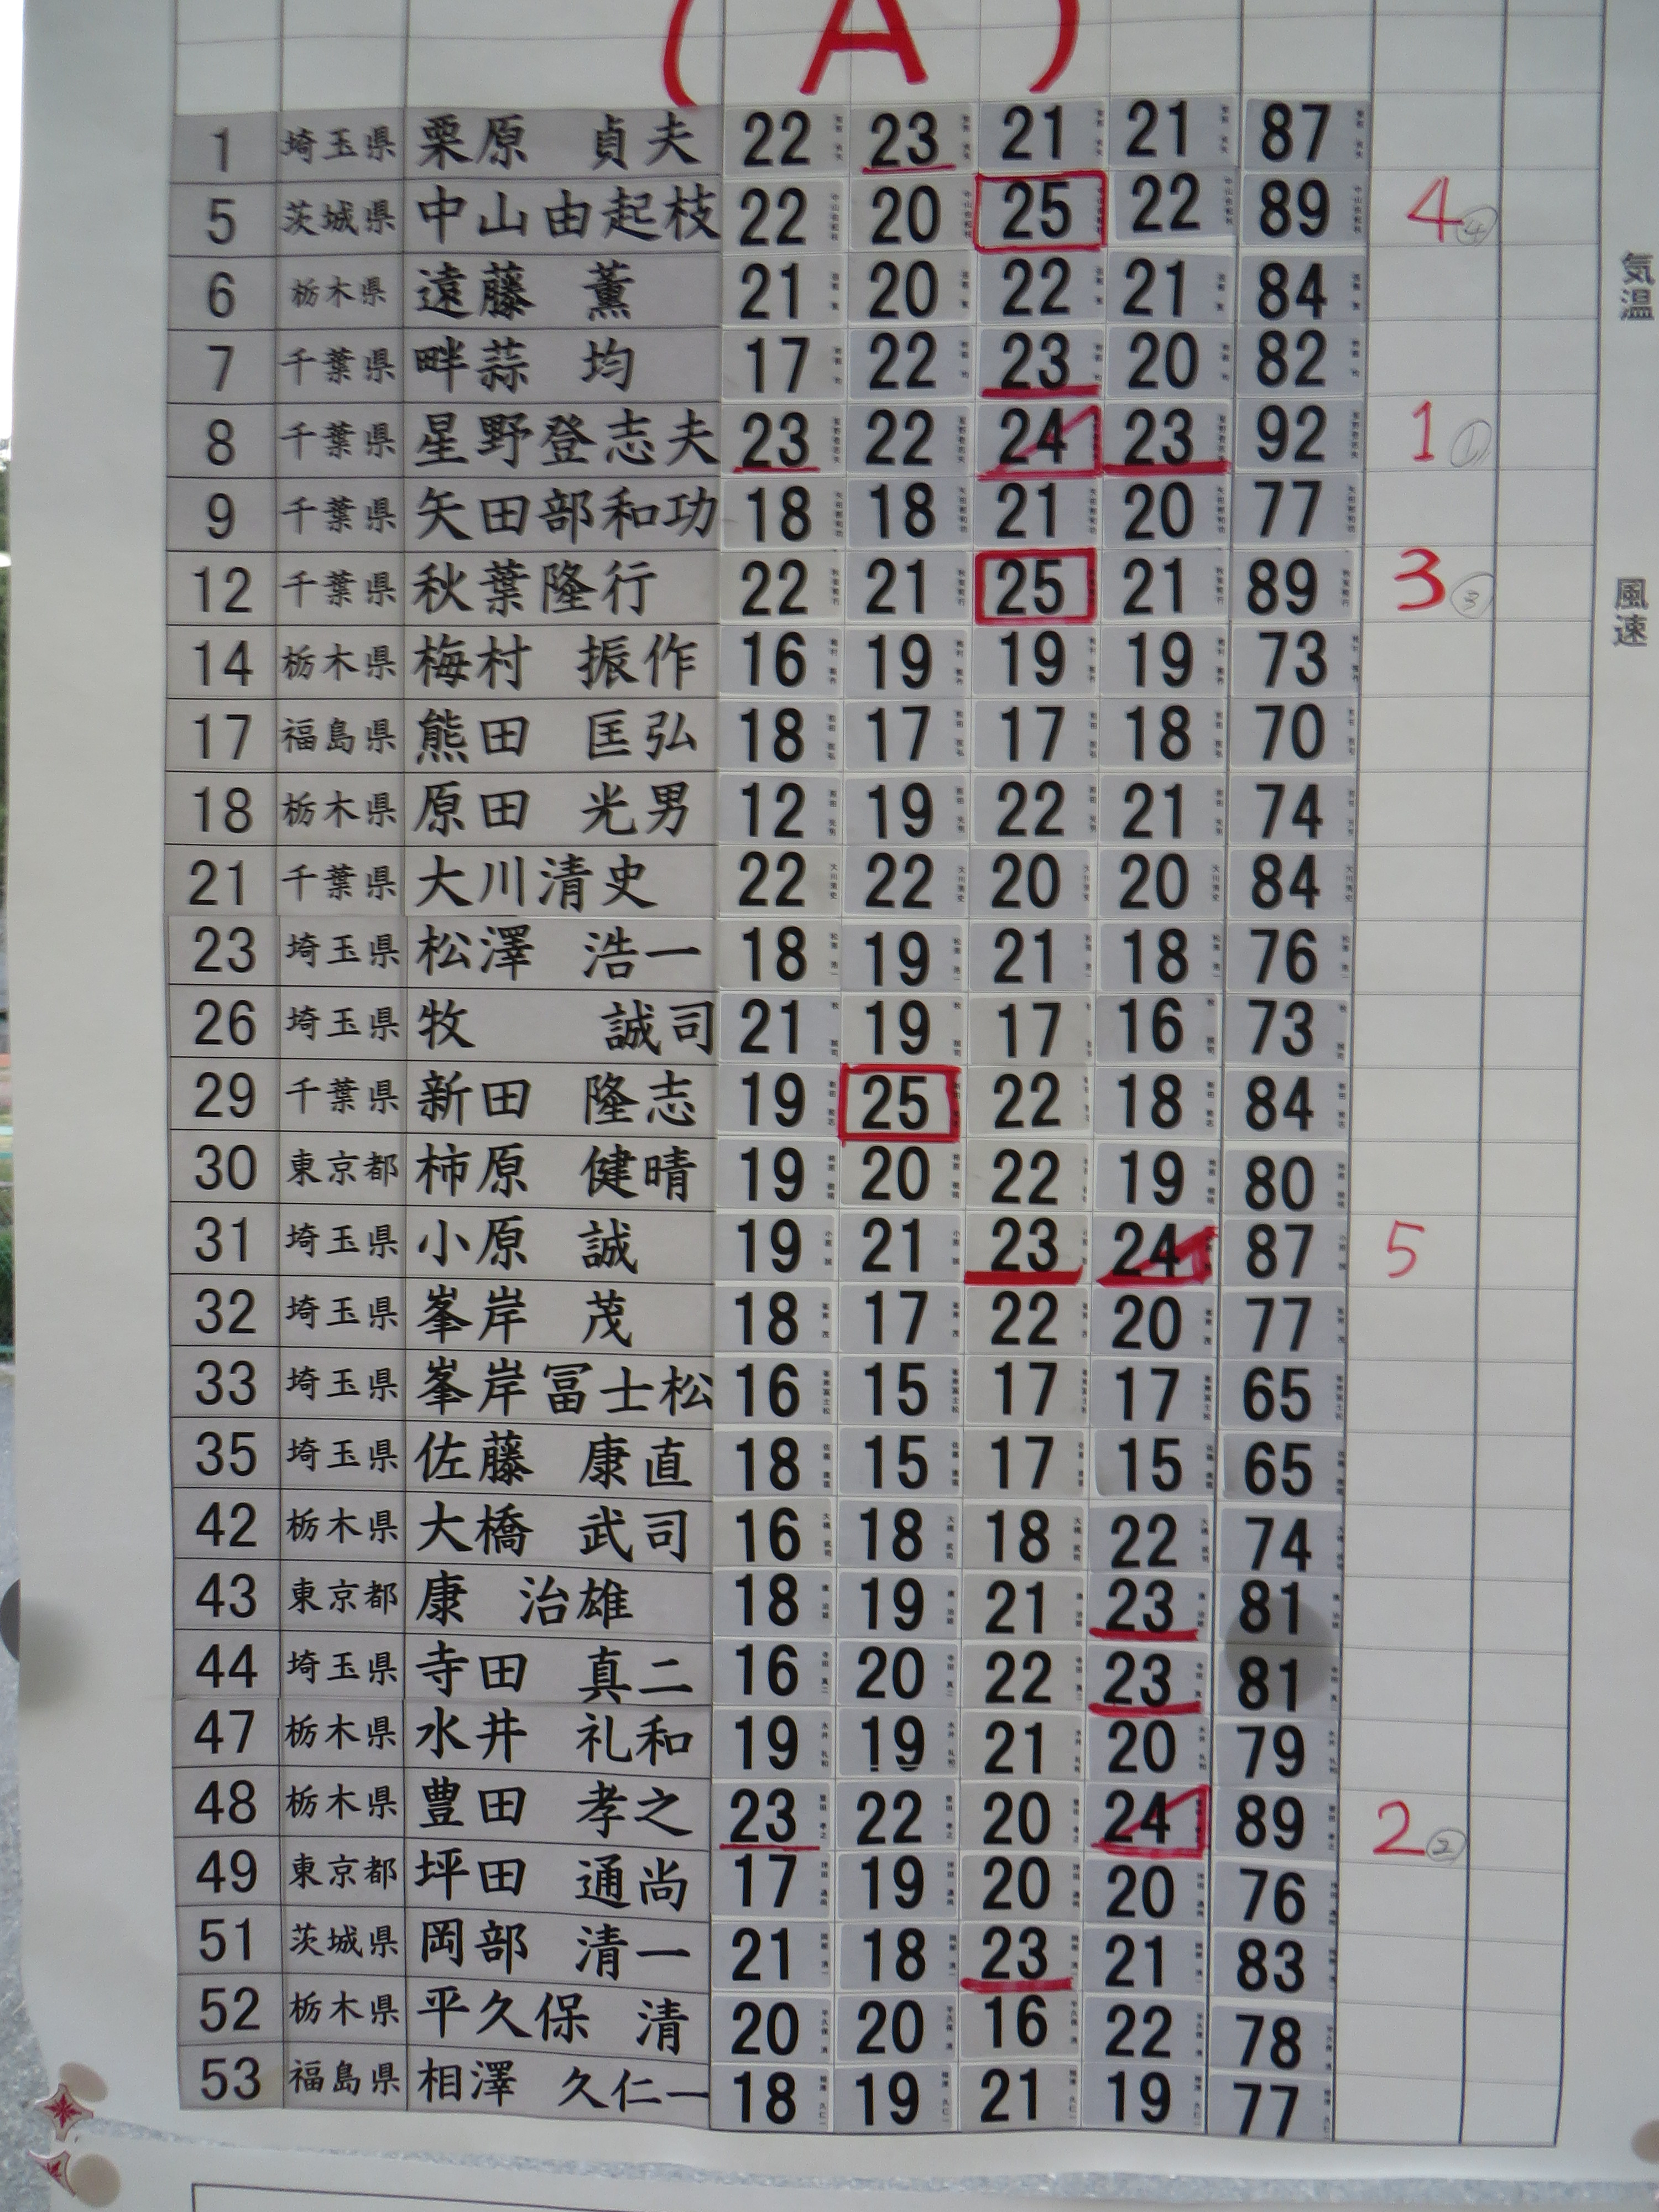 (A)
1 埼玉県 栗原 貞夫 22 23 21 21 87
5 茨城県 中山由起枝 22 20 25 22 89 4 ④
6 栃木県 遠藤 薫 21 20 22 21 84
7 千葉県 畔蒜 均 17 22 23 20 82
8 千葉県 星野登志夫 23 22 24 23 92 1 ①
9 千葉県 矢田部和功 18 18 21 20 77
12 千葉県 秋葉隆行 22 21 25 21 89 3 ③
14 栃木県 梅村 振作 16 19 19 19 73
17 福島県 熊田 匡弘 18 17 17 18 70
18 栃木県 原田 光男 12 19 22 21 74
21 千葉県 大川清史 22 22 20 20 84
23 埼玉県 松澤 浩一 18 19 21 18 76
26 埼玉県 牧 誠司 21 19 17 16 73
29 千葉県 新田 隆志 19 25 22 18 84
30 東京都 柿原 健晴 19 20 22 19 80
31 埼玉県 小原 誠 19 21 23 24 87 5
32 埼玉県 峯岸 茂 18 17 22 20 77
33 埼玉県 峯岸冨士松 16 15 17 17 65
35 埼玉県 佐藤 康直 18 15 17 15 65
42 栃木県 大橋 武司 16 18 18 22 74
43 東京都 康 治雄 18 19 21 23 81
44 埼玉県 寺田 真二 16 20 22 23 81
47 栃木県 水井 礼和 19 19 21 20 79
48 栃木県 豊田 孝之 23 22 20 24 89 2 ②
49 東京都 坪田 通尚 17 19 20 20 76
51 茨城県 岡部 清一 21 18 23 21 83
52 栃木県 平久保 清 20 20 16 22 78
53 福島県 相澤 久仁一 18 19 21 19 77
気温
風速